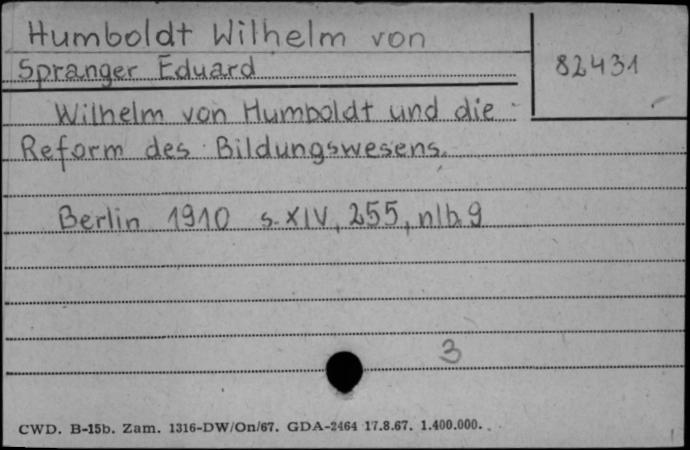 Humboldt Wilhelm von
Spranger Eduard
82431
Wilhelm von Humboldt und die
Reform des Bildungswesens.
Berlin 1910 s. XIV, 255, nlb. 9
3
CWD. B-15b. Zam. 1316-DW/On/67. GDA-2464 17.8.67. 1.400.000.